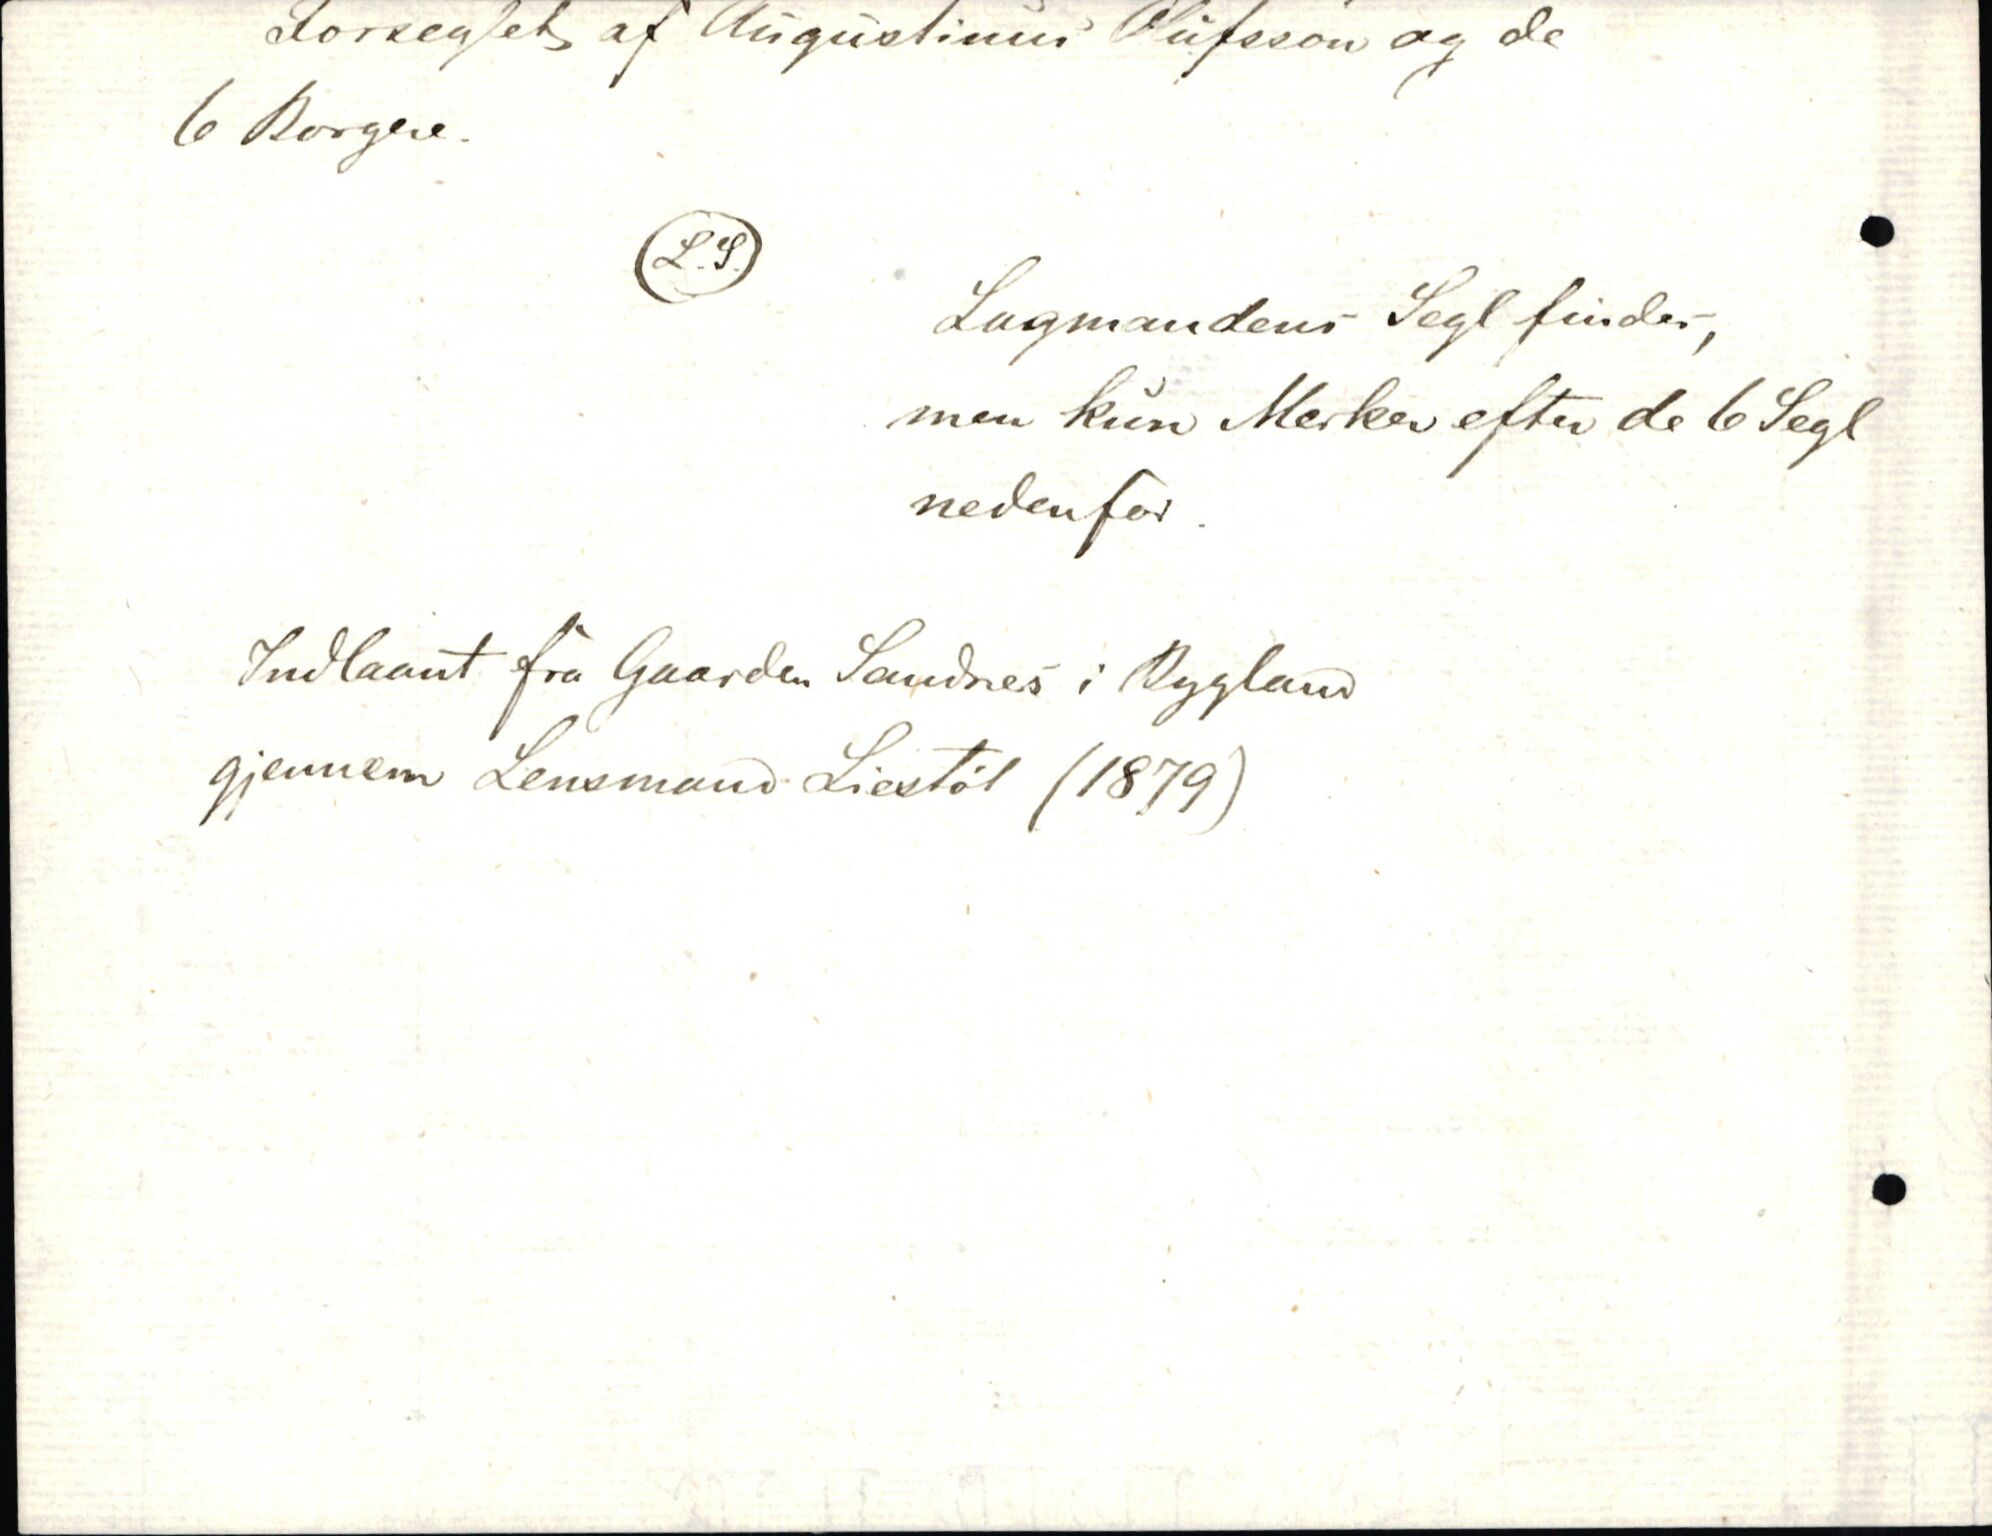 Forseglet af Augustinus Olufsson og de
6 Borgere.
L.S.
Lagmandens Segl findes,
men kun Merker efter de 6 Segl
nedenfor.
Indlaant fra Gaarden Sandnes i Bygland
gjennem Lensmand Liestöl (1879)